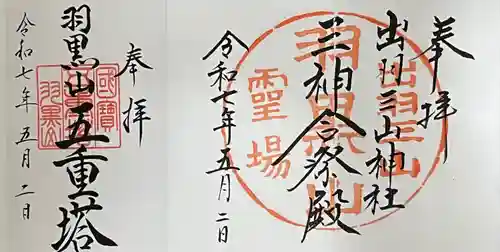 奉拝
出羽三山神社
三神合祭殿
令和七年五月二日
出羽三山
羽黒山
靈場
奉拝
羽黒山五重塔
令和七年五月二日
國寶
羽黒